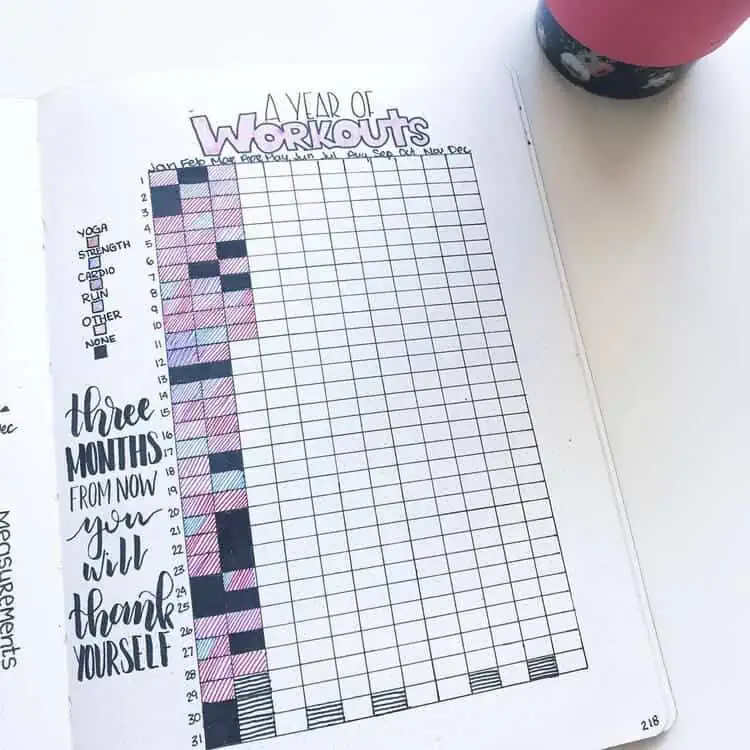 A YEAR OF
WORKOUTS
Jan Feb Mar Apr May Jun Jul Aug Sep Oct Nov Dec
1
2
3
4
5
6
7
8
9
10
11
12
13
14
15
16
17
18
19
20
21
22
23
24
25
26
27
28
29
30
31
YOGA
STRENGTH
CARDIO
RUN
OTHER
NONE
three
MONTHS
FROM NOW
you
will
thank
YOURSELF
Dec
MEASUREMENTS
218